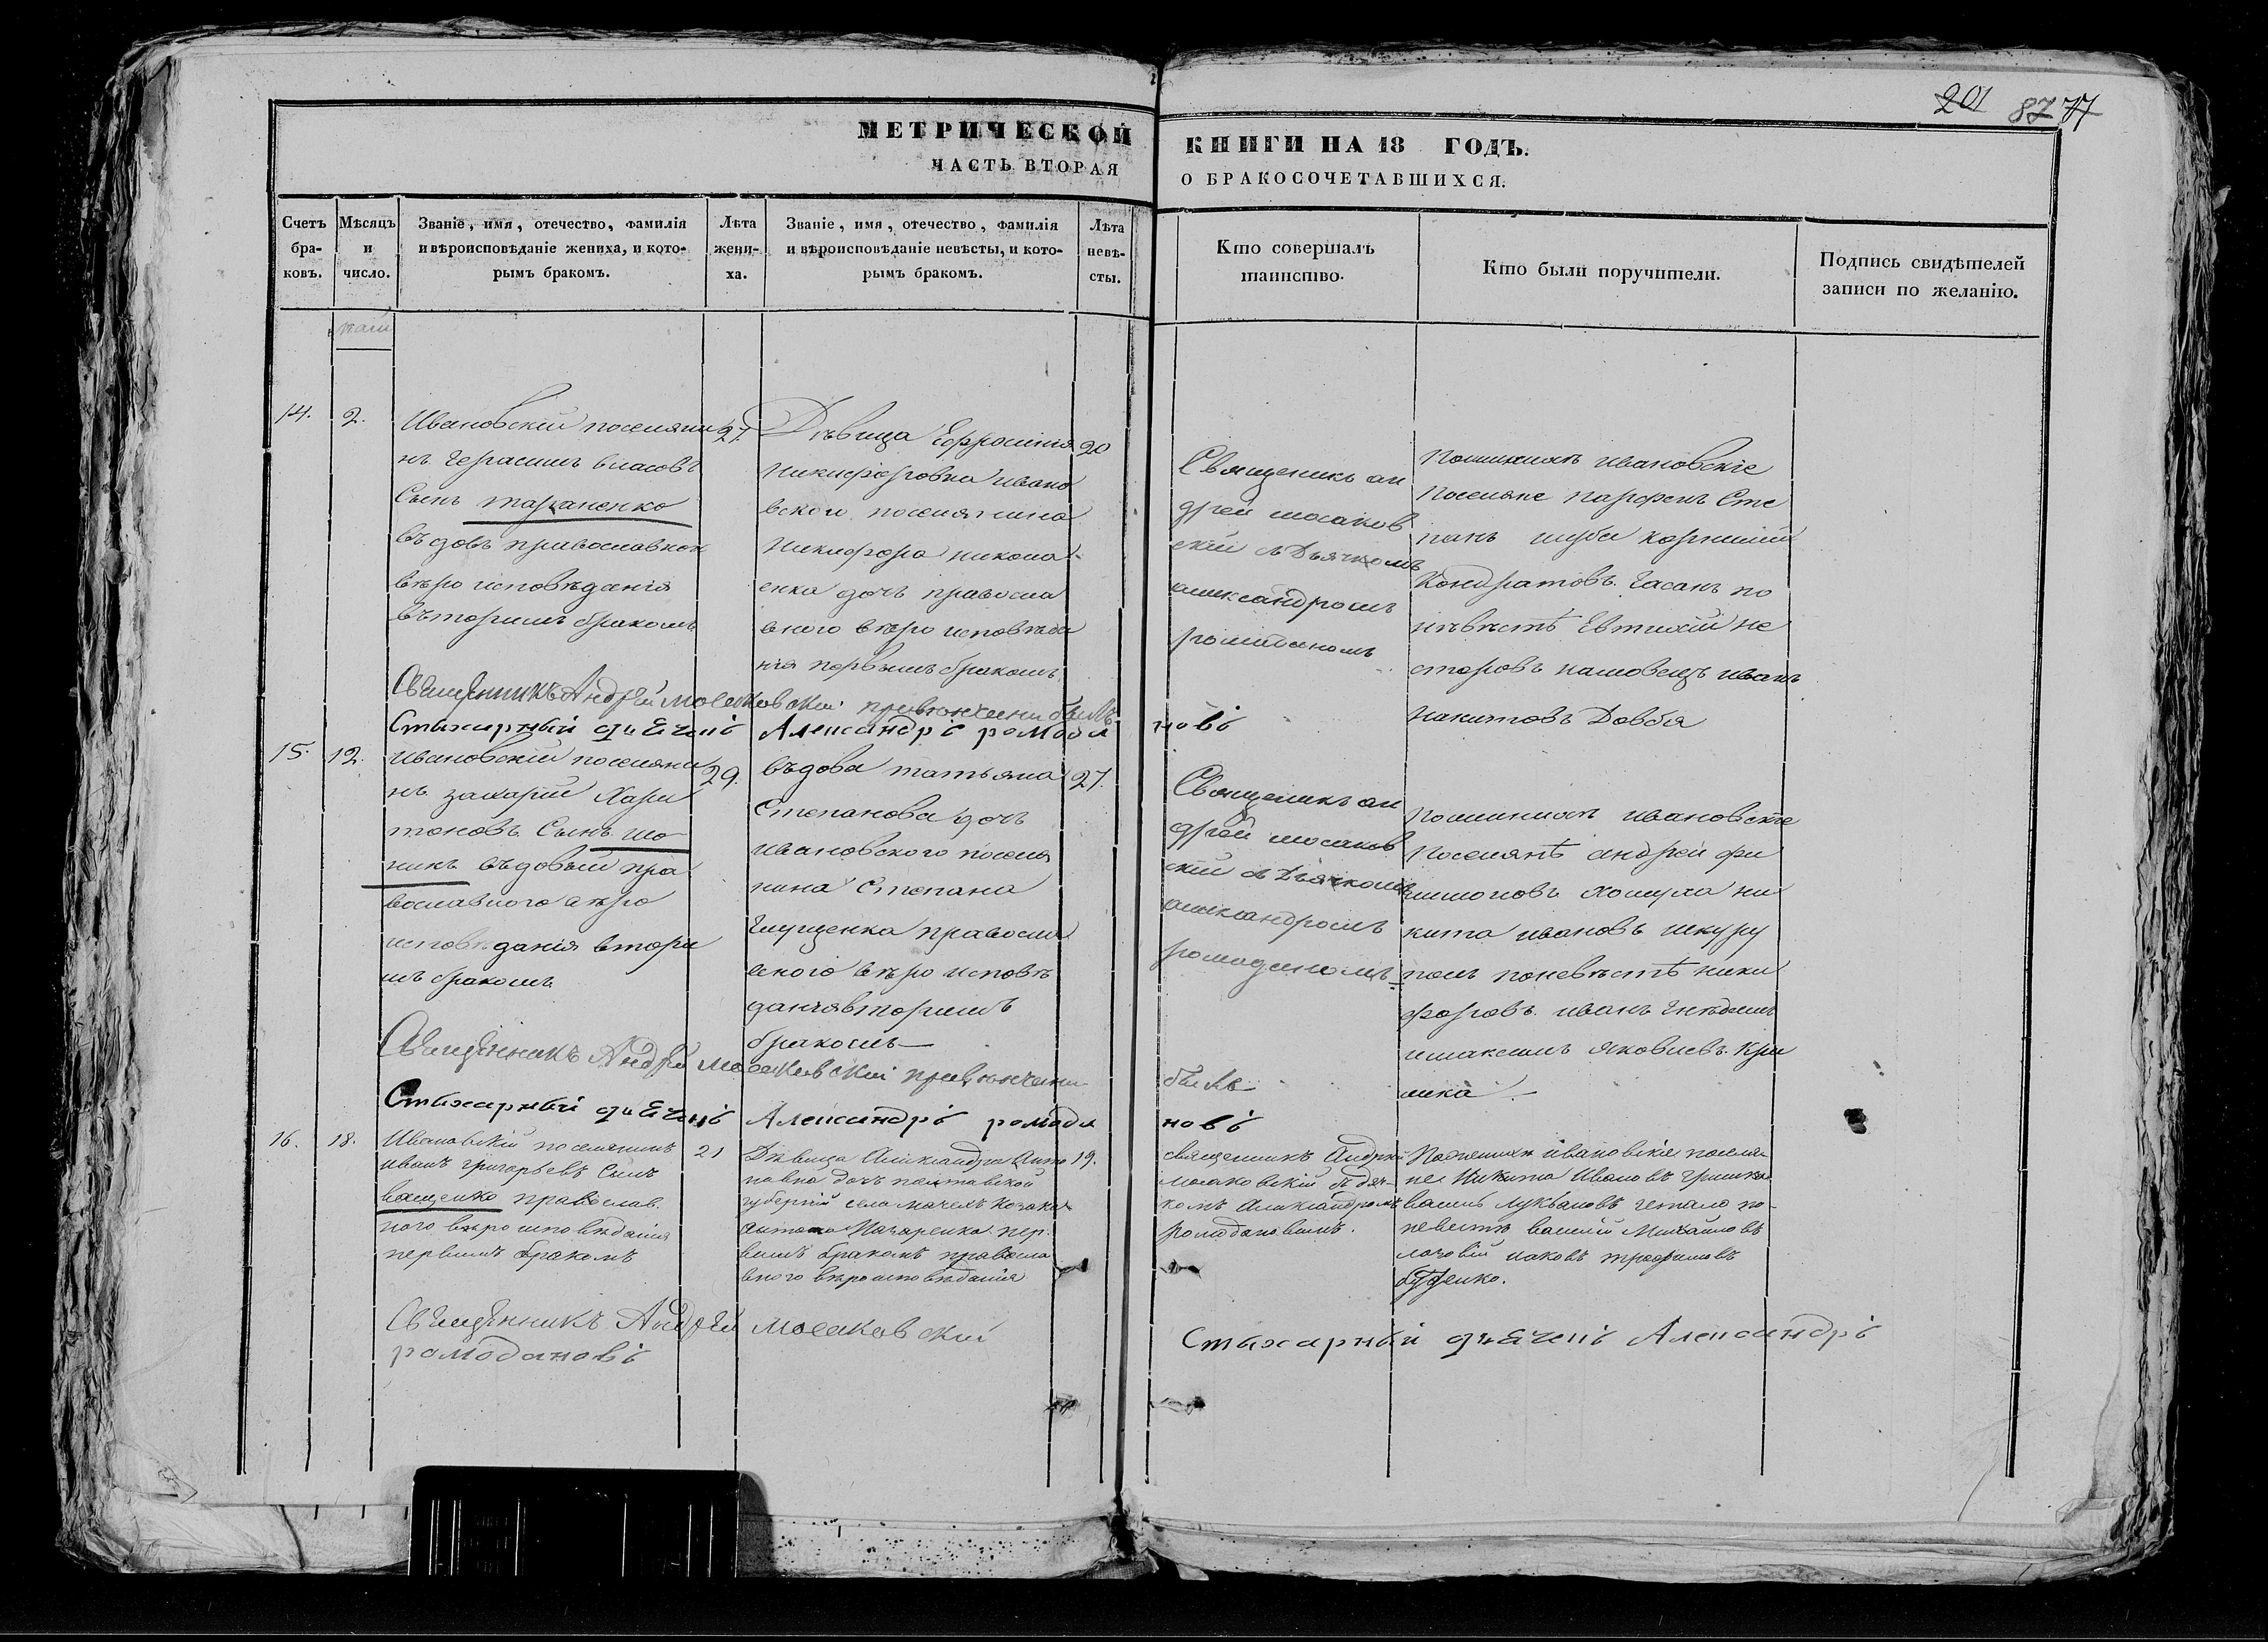 201 87 77
МЕТРИЧЕСКОЙ
ЧАСТЬ ВТОРАЯ
КНИГИ НА 18 ГОДЪ.
О БРАКОСОЧЕТАВШИХСЯ.
Счетъ бра-ковъ.
Мѣсяцъ и число.
Званіе, имя, отечество, фамилія
и вѣроисповѣданіе жениха, и кото-
рымъ бракомъ.
Лѣта жени-ха.
Званіе, имя, отечество, фамилія
и вѣроисповѣданіе невѣсты, и кото-
рымъ бракомъ.
Лѣта невѣ-сты.
Кто совершалъ
таинство.
Кто были поручители.
Подпись свидѣтелей
записи по желанію.
маій
14.
2.
Ивановскій поселяни
нъ Герасимъ власовъ
Сынъ тараненко
въдовъ православнон
вѣро исповѣданія
въторимъ бракомъ
27.
Дѣвица Ефросинія
Никифоровна ивано
вского поселянина
Никифора никола
енка дочъ правосла
вного вѣро исповѣда
нія первымъ бракомъ
20
Священикъ ан
дрей мосаков
скій съ Дьячкомъ
александромъ
Поженихѣ ивановскіе
Поселяне парфенъ Сте
панъ
Кондратовъ по
невѣстѣ Евтихій не
сторовъ иванъ
никитовъ Довбя
Священникъ Андрей Мосаковский привѣнчании былъ
Стихарный дьячекъ Александръ ромода
новъ
15.
12.
Ивановскій поселяни
нъ захарій Хари
тоновъ Сынъ шо
никъ въдовый пра
вославного вѣро
исповѣданія втори
мъ бракомъ
29.
въдова татьяна
Степанова дочъ
ивановского поселя
нина Степана
Глущенка правосла
вного вѣро исповѣ
данія вторимъ
бракомъ
27.
Священикъ ан
дрей мосаков
скій съ Дьячкомъ
александромъ
ромоданомъ
поженихѣ ивановскіе
Поселянѣ андрей фи
лимоновъ Хомуха ни
кита ивановъ шкуру
поневѣстѣ ники
форовъ иванъ
имаксимъ яковлевъ Кри
Священникъ Андрей Мосаковский привѣнчании
былъ
Стихарный дьячекъ Александръ ромода
новъ
16.
18.
Ивановскій поселянинъ
иванъ григорьевъ Сынъ
ващенко православ
ного вѣроисповѣданія
первимъ бракомъ
21
Дѣвица Александра Анто
новна дочъ полтавской
губерній села мачехъ козака
антона Назаренка пер
вимъ бракомъ правосла
вного вѣроисповѣданія
19.
священикъ Андрей
мосаковскій съ дяч-
комъ Александромъ
ромодановимъ.
Поженихѣ ивановскіе поселя
не Никита Ивановъ
Лукьяновъ по-
невестѣ Михайловъ
иаковъ трофимовъ
Священникъ Андрей Мосаковский
Стихарный дьячекъ Александръ
ромодановъ